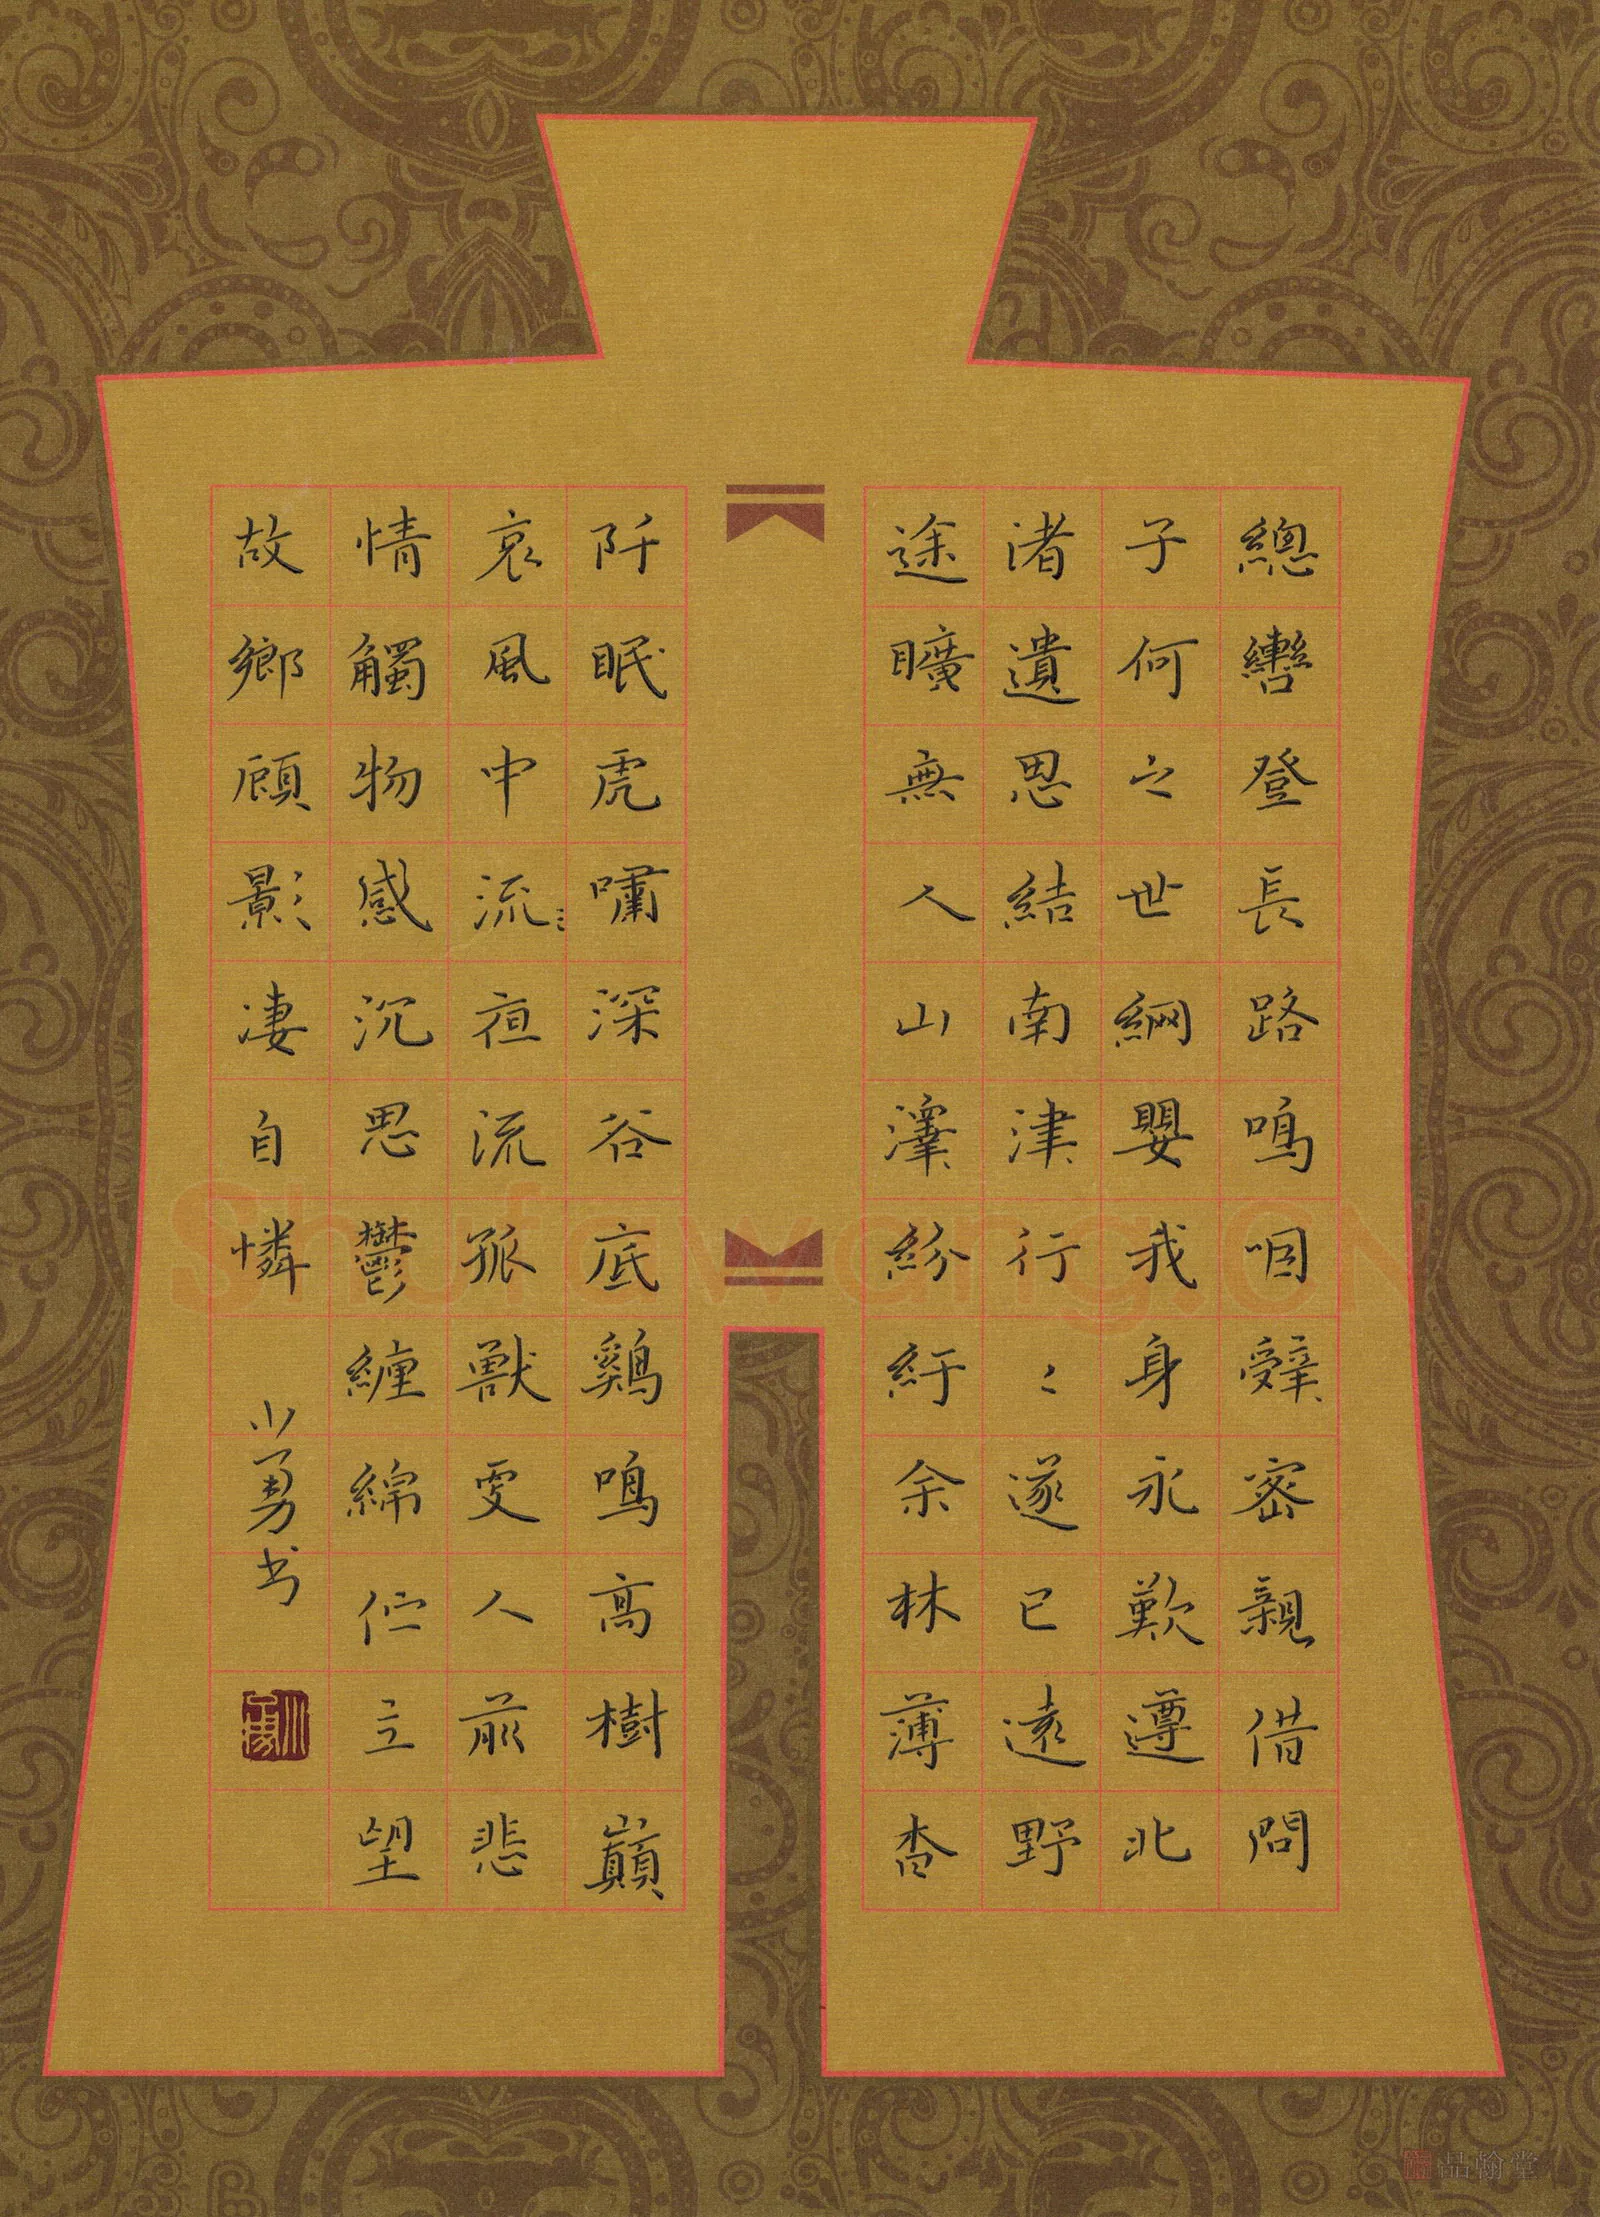 總轡登長路嗚咽辭密親借問
子何之世網嬰我身永歎遵北
渚遺思結南津行〻遂已遠野
途曠無人山澤紛紆余林薄杳
阡眠虎嘯深谷底鷄鳴高樹巔
哀風中流夜流孤獸更人前悲
情觸物感沉思鬱纏綿佇立望
故鄉顧影凄自憐
小勇书
Shufawang.CN
品翰堂